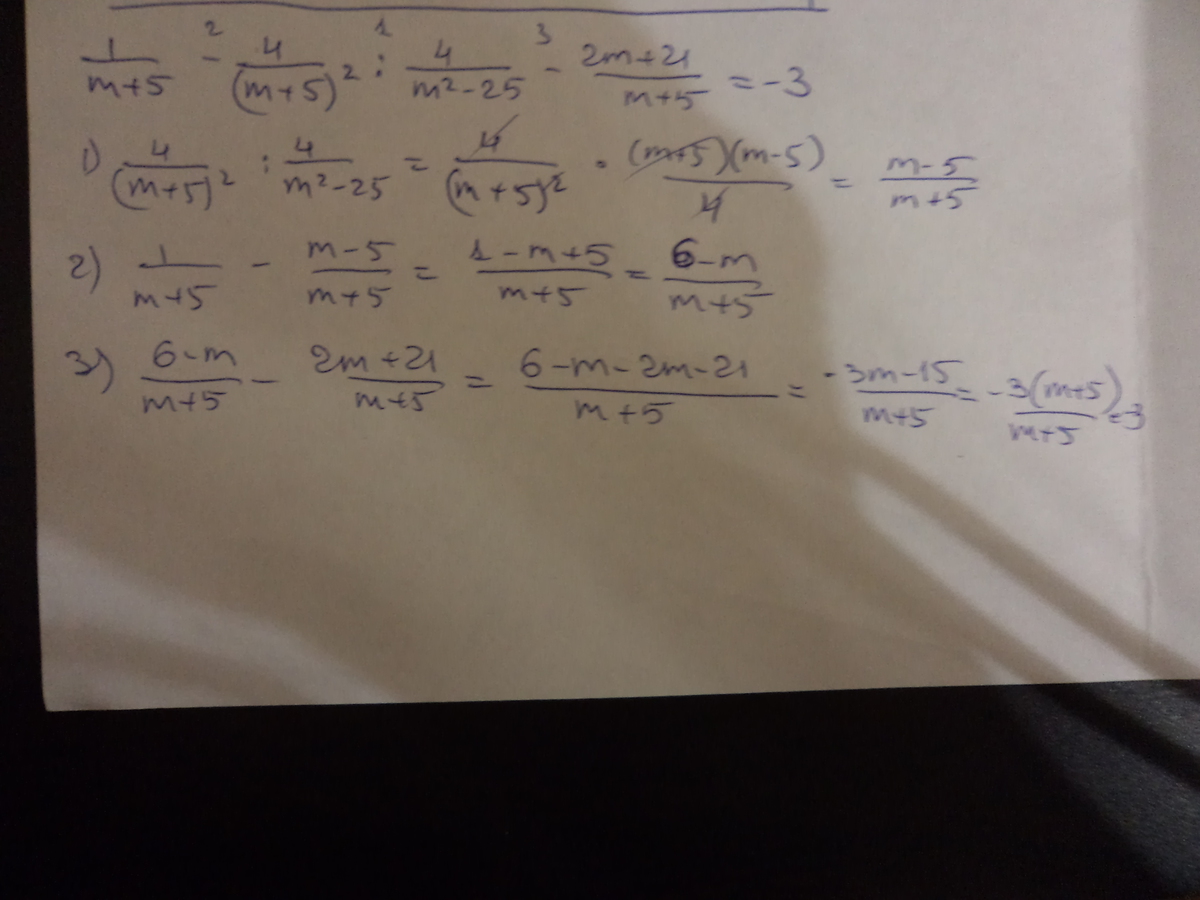 1/(m+5) -² 4/(m+5)² :¹ 4/(m²-25) -³ (2m+21)/(m+5) = -3
1) 4/(m+5)² : 4/(m²-25) = 4/(m+5)² · (m+5)(m-5)/4 = (m-5)/(m+5)
2) 1/(m+5) - (m-5)/(m+5) = (1-m+5)/(m+5) = (6-m)/(m+5)
3) (6-m)/(m+5) - (2m+21)/(m+5) = (6-m-2m-21)/(m+5) = (-3m-15)/(m+5) = -3(m+5)/(m+5) = -3